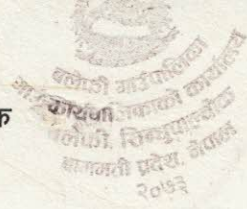 बलेफी गाउँपालिका
गाउँ कार्यपालिकाको कार्यालय
क
बलेफी, सिन्धुपाल्चोक
बागमती प्रदेश, नेपाल
२०७३